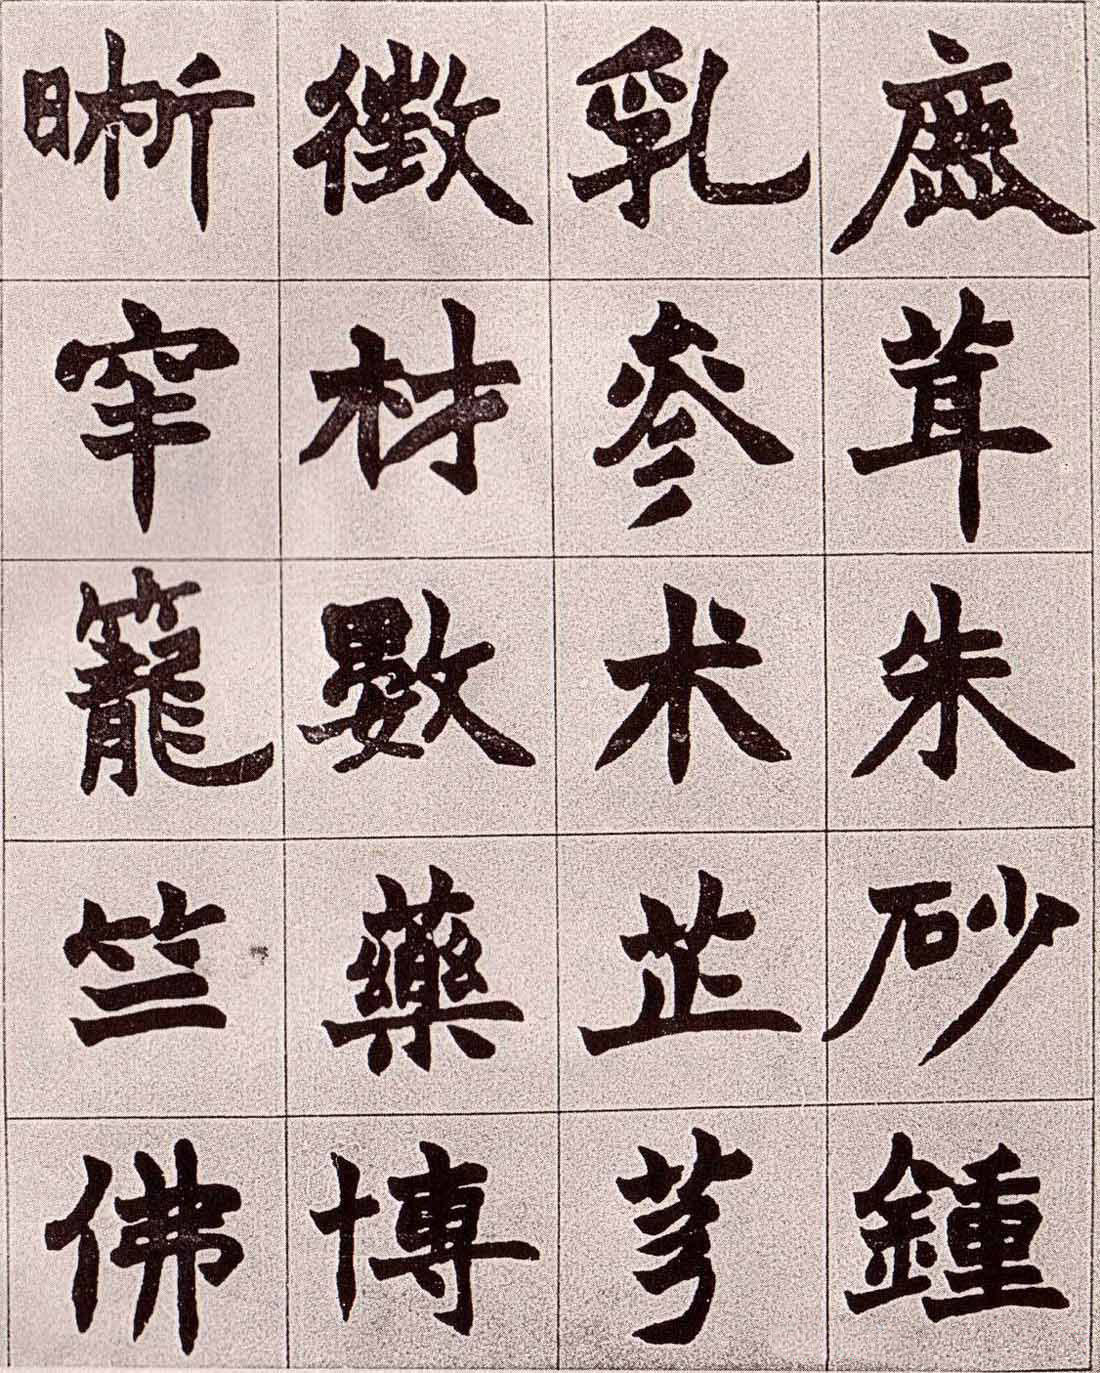 鹿茸朱砂鍾
乳參术芷芎
徵材數藥博
晰窂籠竺佛